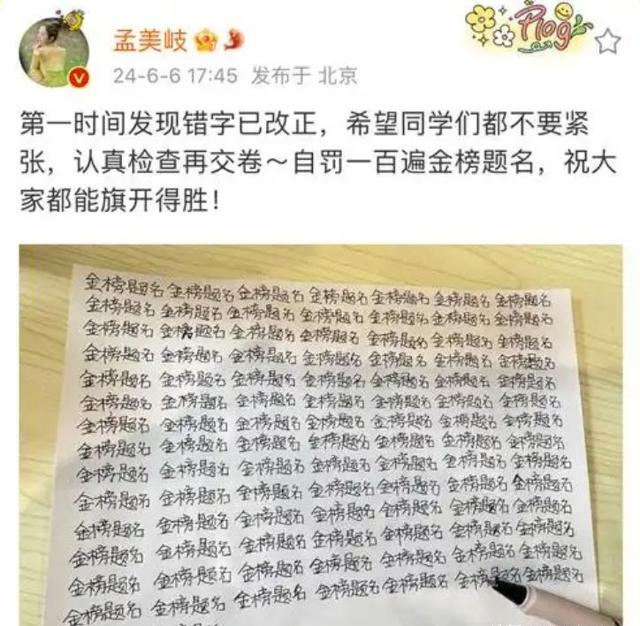 孟美岐
24-6-6 17:45 发布于 北京
Plog
第一时间发现错字已改正，希望同学们都不要紧
张，认真检查再交卷～自罚一百遍金榜题名，祝大
家都能旗开得胜！
金榜题名 金榜题名 金榜题名 金榜题名 金榜题名 金榜题名 金榜题名
金榜题名 金榜题名 金榜题名 金榜题名 金榜题名 金榜题名 金榜题名
金榜题名 金榜题名 金榜题名 金榜题名 金榜题名 金榜题名 金榜题名
金榜题名 金榜题名 金榜题名 金榜题名 金榜题名 金榜题名 金榜题名
金榜题名 金榜题名 金榜题名 金榜题名 金榜题名 金榜题名 金榜题名
金榜题名 金榜题名 金榜题名 金榜题名 金榜题名 金榜题名 金榜题名
金榜题名 金榜题名 金榜题名 金榜题名 金榜题名 金榜题名 金榜题名
金榜题名 金榜题名 金榜题名 金榜题名 金榜题名 金榜题名 金榜题名
金榜题名 金榜题名 金榜题名 金榜题名 金榜题名 金榜题名 金榜题名
金榜题名 金榜题名 金榜题名 金榜题名 金榜题名 金榜题名 金榜题名
金榜题名 金榜题名 金榜题名 金榜题名 金榜题名 金榜题名 金榜题名
金榜题名 金榜题名 金榜题名 金榜题名 金榜题名 金榜题名 金榜题名
金榜题名 金榜题名 金榜题名 金榜题名 金榜题名 金榜题名 金榜题名
金榜题名 金榜题名 金榜题名 金榜题名 金榜题名 金榜题名 金榜题名